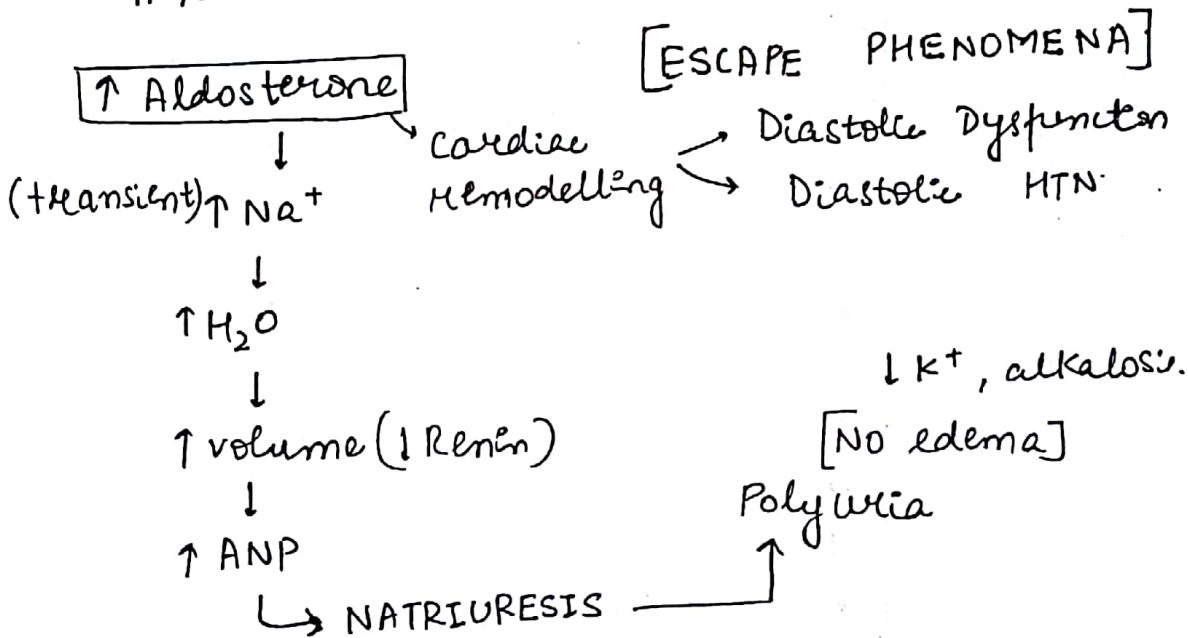 [ESCAPE PHENOMENA]
↑ Aldosterone
↓
Cardiac
remodelling
Diastolic Dysfunction
Diastolic HTN.
(transient) ↑ Na⁺
↓
↑ H₂O
↓
↑ volume (↓ Renin)
↓
↑ ANP
↳ NATRIURESIS
Polyuria
[No edema]
↓ K⁺, alkalosis.